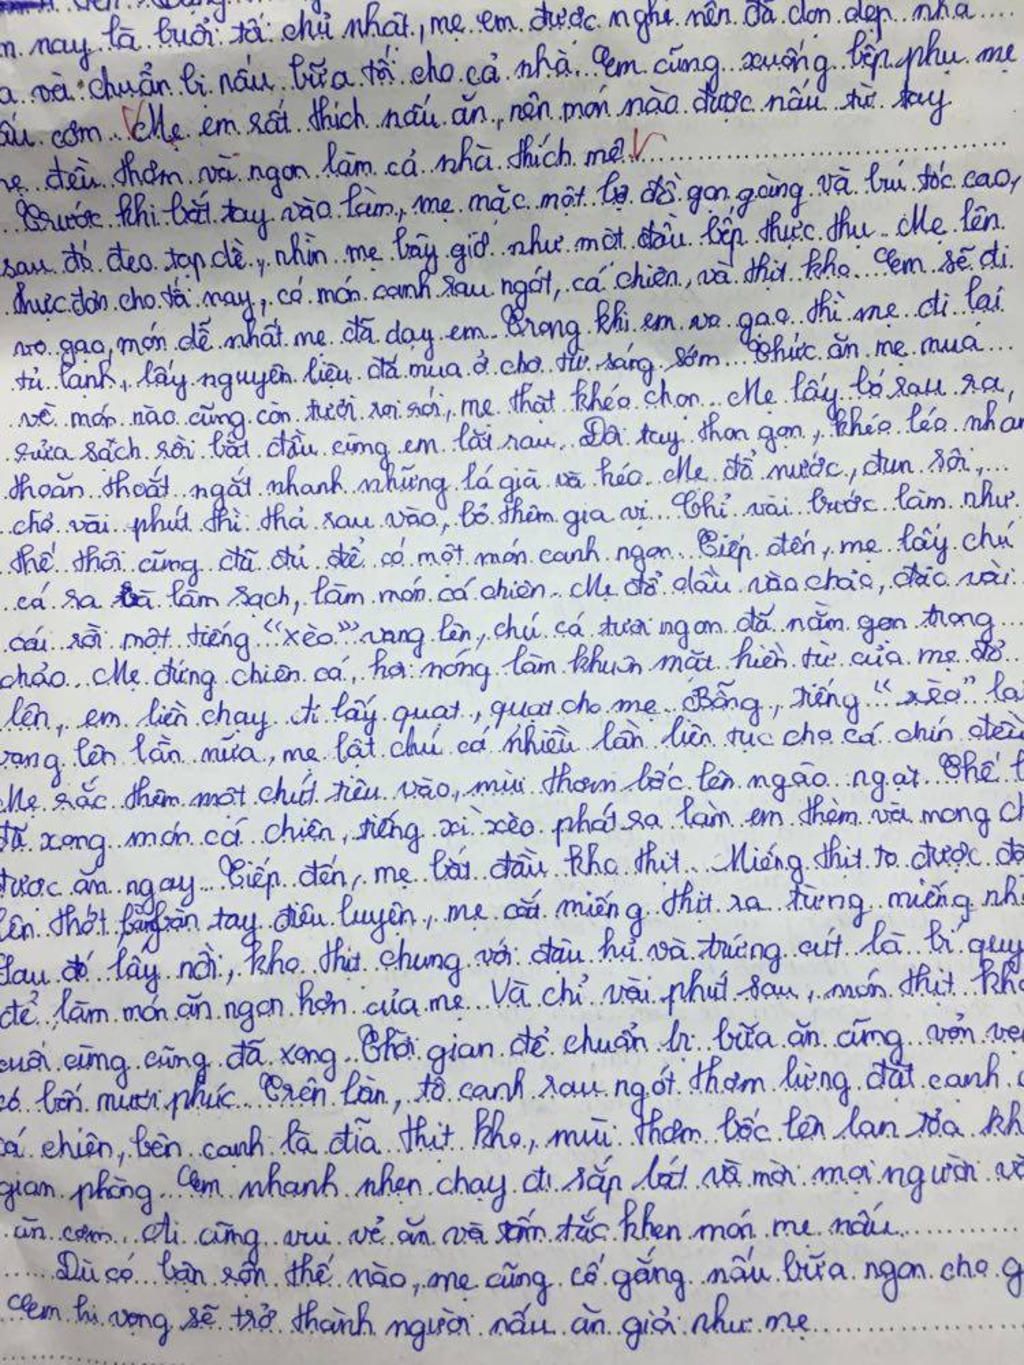 n nay là buổi tối chủ nhật, mẹ em được nghỉ nên đã dọn dẹp nhà
a và chuẩn bị nấu bữa tối cho cả nhà. Em cũng xuống bếp phụ mẹ
ấu cơm. Mẹ em rất thích nấu ăn, nên món nào được nấu từ tay
mẹ đều thơm và ngon làm cả nhà thích mê.
Trước khi bắt tay vào làm, mẹ mặc một bộ đồ gọn gàng và búi tóc cao,
sau đó đeo tạp dề, nhìn mẹ bây giờ như một đầu bếp thực thụ. Mẹ lên
thực đơn cho tối nay, có món canh rau ngót, cá chiên, và thịt kho. Em sẽ đi
vo gạo, món dễ nhất mẹ đã dạy em. Trong khi em vo gạo thì mẹ đi lại
tủ lạnh, lấy nguyên liệu đã mua ở chợ từ sáng sớm. Thức ăn mẹ mua
về món nào cũng còn tươi roi rói, mẹ thật khéo chọn. Mẹ lấy bó rau ra,
rửa sạch rồi bắt đầu cùng em lặt rau. Đôi tay thon gọn, khéo léo nhan
thoăn thoắt ngắt nhanh những lá già và héo. Mẹ đổ nước, đun sôi,
chờ vài phút thì thả rau vào, bỏ thêm gia vị. Chỉ vài bước làm như
thế thôi cũng đã đủ để có một món canh ngon. Tiếp đến, mẹ lấy chú
cá ra làm sạch, làm món cá chiên. Mẹ đổ dầu vào chảo, đảo vài
cái rồi một tiếng "xèo" vang lên, chú cá tươi ngon đã nằm gọn trong
chảo. Mẹ đứng chiên cá, hơi nóng làm khuôn mặt hiền từ của mẹ đỏ
lên, em liền chạy đi lấy quạt, quạt cho mẹ. Bỗng, tiếng "xèo" lại
vang lên lần nữa, mẹ lật chú cá nhiều lần liên tục cho cá chín đều
Mẹ rắc thêm một chút tiêu vào, mùi thơm bốc lên ngào ngạt. Thế l
đã xong món cá chiên, tiếng xì xèo phát ra làm em thèm và mong ch
được ăn ngay. Tiếp đến, mẹ bắt đầu kho thịt. Miếng thịt to được đặ
lên thớt, bằng bàn tay điêu luyện, mẹ cắt miếng thịt ra từng miếng nh
Sau đó lấy nồi, kho thịt chung với đậu hủ và trứng cút là bí quy
để làm món ăn ngon hơn của mẹ. Và chỉ vài phút sau, món thịt kho
cuối cùng cũng đã xong. Thời gian để chuẩn bị bữa ăn cũng vỏn vẹ
có bốn mươi phúc. Trên bàn, tô canh rau ngót thơm lừng đặt cạnh
cá chiên, bên cạnh là đĩa thịt kho, mùi thơm bốc lên lan tỏa kh
gian phòng. Em nhanh nhẹn chạy đi sắp bát và mời mọi người và
ăn cơm. Ai cũng vui vẻ ăn và tấm tắc khen món mẹ nấu.
Dù có bận rộn thế nào, mẹ cũng cố gắng nấu bữa ngon cho g
Em hi vọng sẽ trở thành người nấu ăn giỏi như mẹ